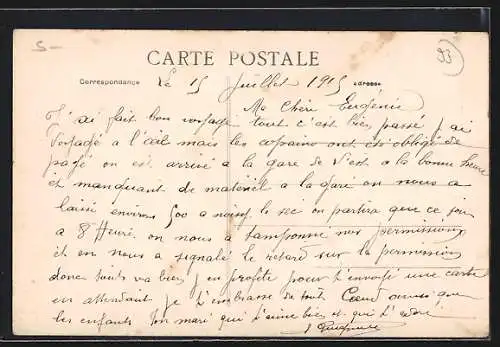 5-
33
CARTE POSTALE
Correspondance
Adresse
Le 15 Juillet 1915
Ma Chère Eugénie
J'ai fait bon voyage tout c'est bien passé j'ai
voyagé a l'œil mais les copains ont été obligé de
payé on est arrivé a la gare de l'est a la bonne heure
et manquant de matériel a la gare on nous a
laissé environ 500 a noisy le sec on partira que ce soir
a 8 Heure on nous a tamponné nos permissions
et on nous a signalé le retard sur la permission
donc tout va bien j'en profite pour t'envoyé une carte
en attendant je t'embrasse de tout Coeur ainsi que
les enfants ton mari qui t'aime bien et qui t'adore